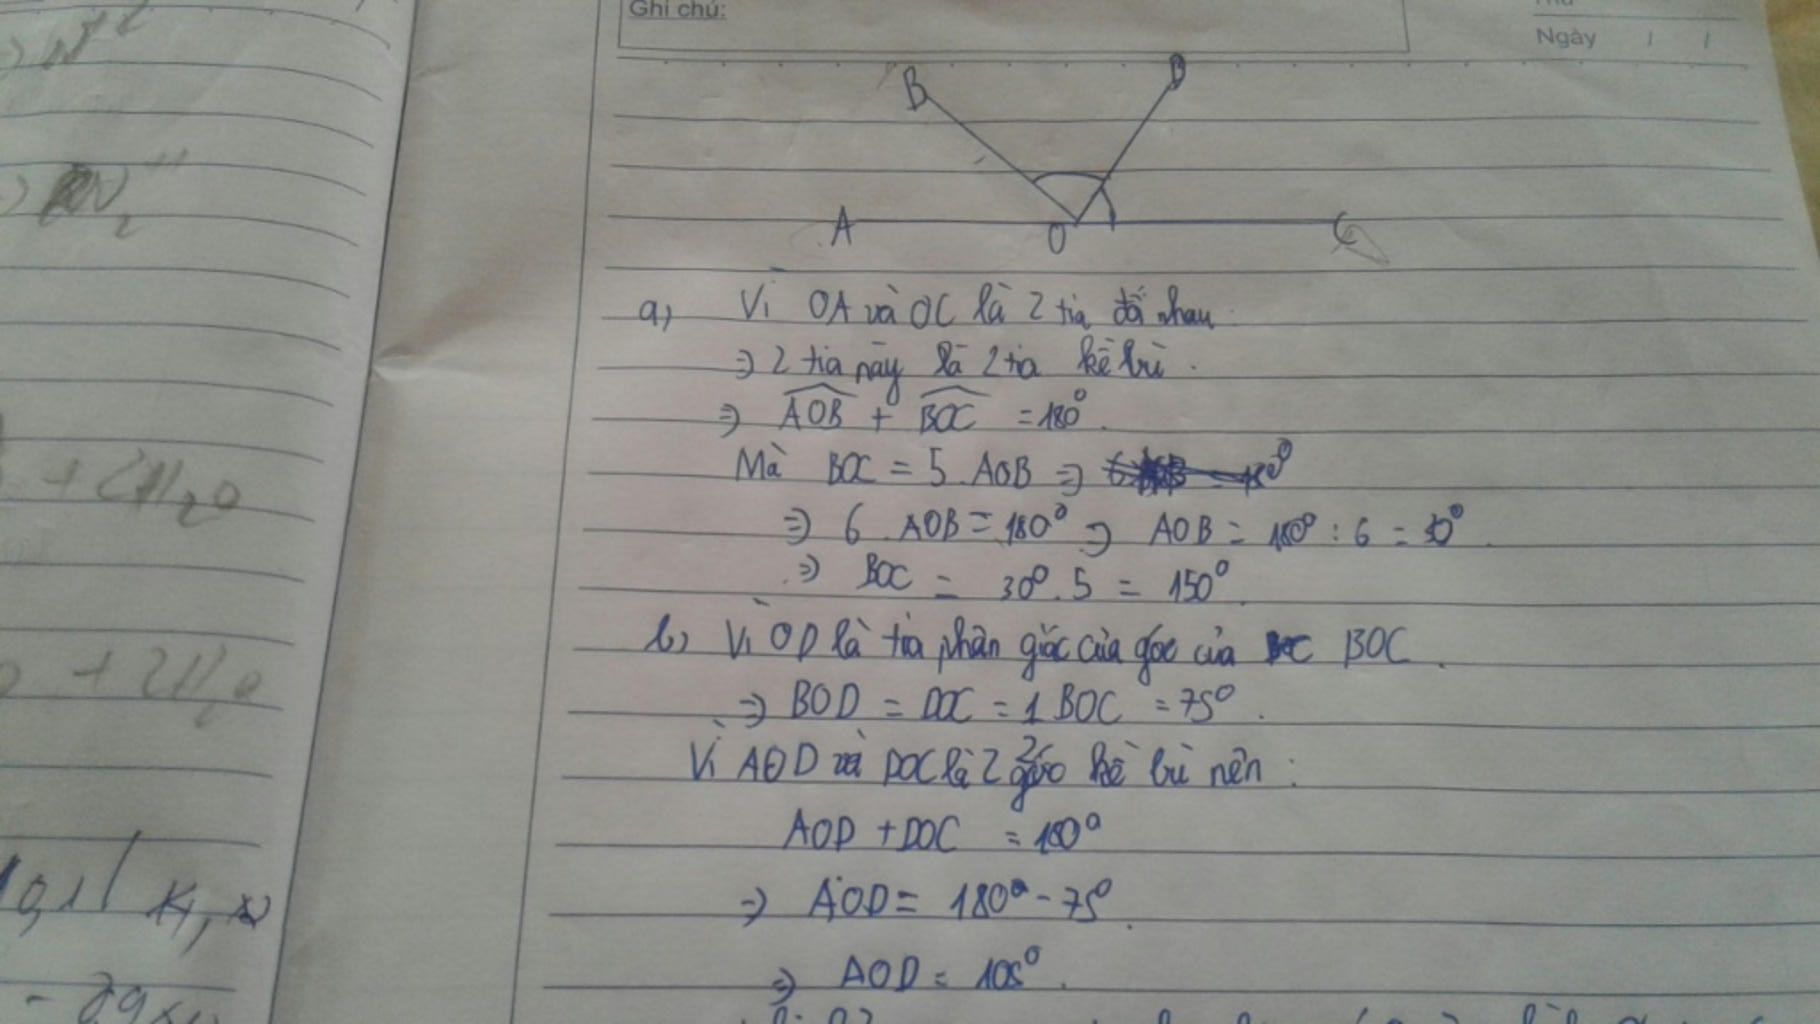 Ghi chú:
Ngày / /
B D
A O C
a) Vì OA và OC là 2 tia đối nhau
⇒ 2 tia này là 2 tia kề bù.
⇒ AOB + BOC = 180°.
Mà BOC = 5.AOB ⇒
⇒ 6.AOB = 180° ⇒ AOB = 180° : 6 = 30°.
⇒ BOC = 30°.5 = 150°.
b) Vì OD là tia phân giác của góc của BOC.
⇒ BOD = DOC = 1/2 BOC = 75°.
Vì AOD và DOC là 2 góc kề bù nên:
AOD + DOC = 180°
⇒ AOD = 180° - 75°.
⇒ AOD = 105°.
+ 2H₂O
+ 2H₂O